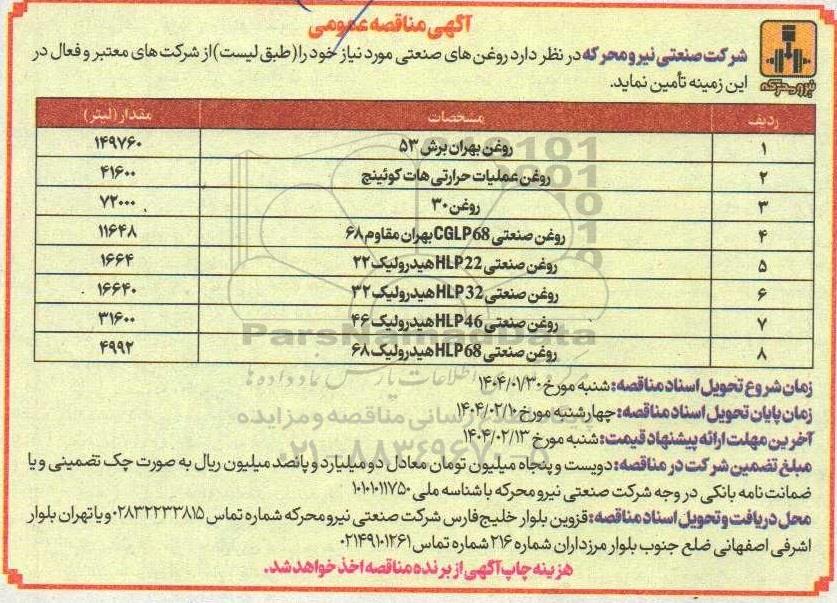 آگهی مناقصه عمومی
شرکت صنعتی نیرو محرکه در نظر دارد روغن های صنعتی مورد نیاز خود را (طبق لیست) از شرکت های معتبر و فعال در
این زمینه تأمین نماید.
نیرو محرکه
ردیف مشخصات مقدار (لیتر)
۱ روغن بهران برش ۵۳ ۱۴۹۷۶۰
۲ روغن عملیات حرارتی هات کوئینچ ۴۱۶۰۰
۳ روغن ۳۰ ۷۲۰۰۰
۴ روغن صنعتی CGLP68 بهران مقاوم ۶۸ ۱۱۶۴۸
۵ روغن صنعتی HLP22 هیدرولیک ۲۲ ۱۶۶۴
۶ روغن صنعتی HLP32 هیدرولیک ۳۲ ۱۶۶۴۰
۷ روغن صنعتی HLP46 هیدرولیک ۴۶ ۳۱۶۰۰
۸ روغن صنعتی HLP68 هیدرولیک ۶۸ ۴۹۹۲
ParsNamadData
زمان شروع تحویل اسناد مناقصه: شنبه مورخ ۱۴۰۴/۰۱/۳۰
زمان پایان تحویل اسناد مناقصه: چهارشنبه مورخ ۱۴۰۴/۰۲/۱۰
آخرین مهلت ارائه پیشنهاد قیمت: شنبه مورخ ۱۴۰۴/۰۲/۱۳
۰۲۱-۸۸۳۴۹۶۷۰-۵
مبلغ تضمین شرکت در مناقصه: دویست و پنجاه میلیون تومان معادل دو میلیارد و پانصد میلیون ریال به صورت چک تضمینی و یا
ضمانت نامه بانکی در وجه شرکت صنعتی نیرو محرکه با شناسه ملی ۱۰۱۰۱۰۱۱۷۵۰
محل دریافت و تحویل اسناد مناقصه: قزوین بلوار خلیج فارس شرکت صنعتی نیرو محرکه شماره تماس ۰۲۸۳۲۲۳۳۸۱۵ و یا تهران بلوار
اشرفی اصفهانی ضلع جنوب بلوار مرزداران شماره ۲۱۶ شماره تماس ۰۲۱۴۹۱۰۱۲۶۱
هزینه چاپ آگهی از برنده مناقصه اخذ خواهد شد.